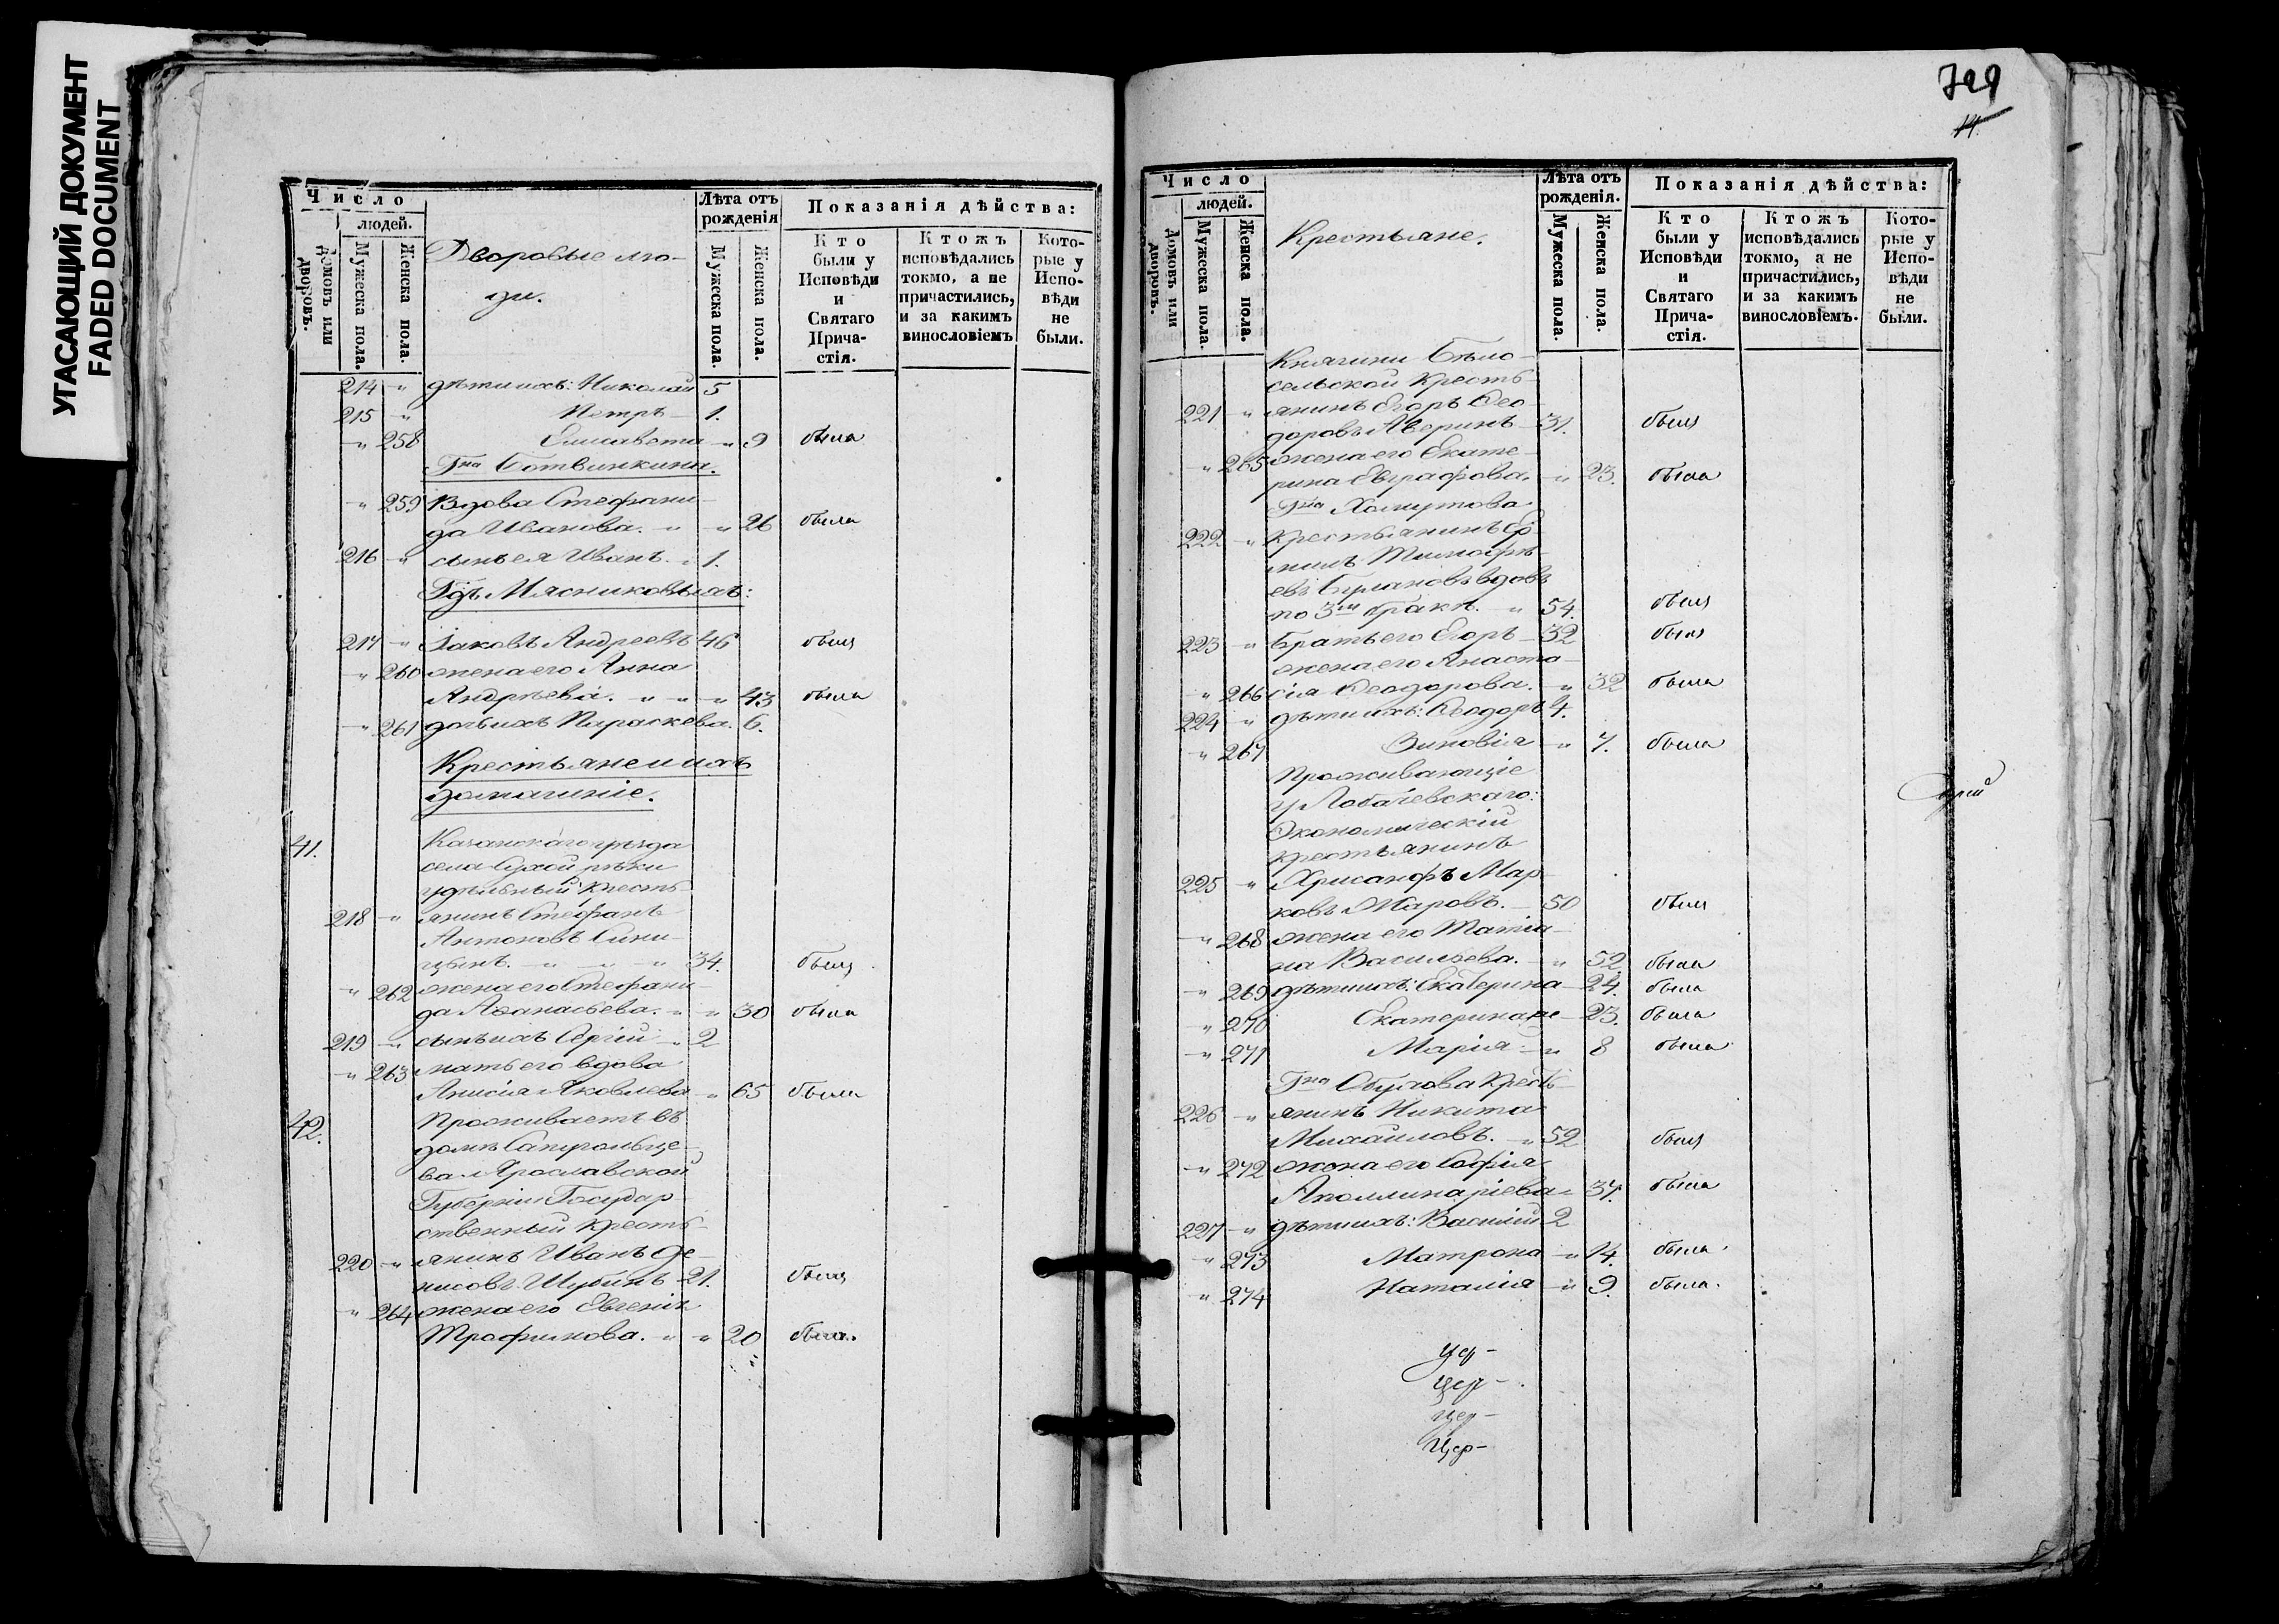 УГАСАЮЩИЙ ДОКУМЕНТ
FADED DOCUMENT
Число
людей.
Домовъ или дворовъ.
Мужеска пола.
Женска пола.
Дворовые лю-
ди.
Лѣта отъ рожденія
Мужеска пола.
Женска пола.
Показанія дѣйства:
Кто были у Исповѣди и Святаго Прича-стія.
Ктожъ исповѣдались токмо, а не причастились, и за какимъ винословіемъ
Кото-рые у Испо-вѣди не были.
214 " дѣти ихъ: Николай 5
215 " Петръ 1.
" 258 Елисавета " 9 была
Гна Ботвинкина.
" 259 Вдова Стефани-
да Иванова. " " 26 была
216 " сынъ ея Иванъ. " 1.
Гдъ Мясниковыхъ:
217 " Іаковъ Андреевъ 46 былъ
" 260 жена его Анна
Андреева. " " " 43 была
" 261 дочь ихъ Параскева. 6.
Крестьяне и ихъ
домашніе.
41. Казанскаго уѣзда
села Сухой рѣки
удѣльный кресть-
218 " янинъ Стефанъ
Антоновъ Сини-
цынъ. " " " 34. былъ
" 262 жена его Стефани-
да Аѳанасьева. " " 30 была
219 " сынъ ихъ Сергій " 2
" 263 мать его вдова
Анисія Яковлева " 65 была
42. Проживаетъ въ
домѣ
ва Ярославской
Губерніи Государ-
ственный кресть-
220 " янинъ Иванъ Де-
нисовъ Шубинъ 21. былъ
" 264 жена его Евгенія
Трофимова. " " 20 была.
729
14.
Число
людей.
Домовъ или дворовъ.
Мужеска пола.
Женска пола.
Крестьяне.
Лѣта отъ рожденія.
Мужеска пола.
Женска пола.
Показанія дѣйства:
Кто были у Исповѣди и Святаго Прича-стія.
Ктожъ исповѣдались токмо, а не причастились, и за какимъ винословіемъ.
Кото-рые у Испо-вѣди не были.
Княгини Бѣло-
сельской кресть-
221 " янинъ Егоръ Ѳео-
доровъ Аверинъ 31. былъ
" 265 жена его Екате-
рина Евграфова. " 23. была
Гна Хомутова
222 " Крестьянинъ
Тимофѣ-
евъ вдовъ
по 3мъ бракѣ. " 54. былъ
223 " Братъ его Егоръ 32 былъ
жена его Анаста-
" 266 сія Ѳеодорова. " 32 была
224 " дѣти ихъ: Ѳеодоръ 4.
" 267 Зиновія " 7. была
Проживающіе
у Лобачевскаго:
Экономическій
крестьянинъ
225 " Хрисанфъ Мар-
ковъ Жаровъ. 50 былъ
" 268 жена его Татіа-
на Васильева. " 52 была
" 269 дѣти ихъ: Екатерина 24. была
" 270 Екатерина же 23. была
" 271 Марія " 8 была
Гна Обухова кресть-
226 " янинъ Никита
Михайловъ. " 52 былъ
" 272 жена его Софія
Аполлинаріева " 37. была
227 " дѣти ихъ: Василій 2
" 273 Матрона " 14. была
" 274 Наталія " 9. была.